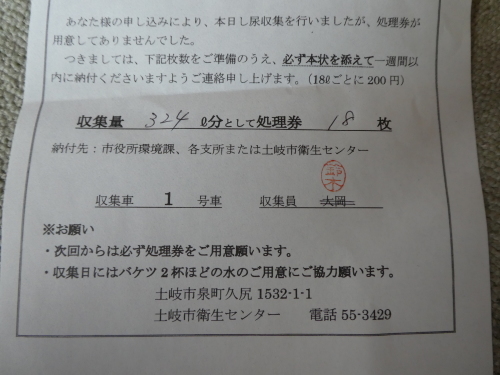 あなた様の申し込みにより、本日し尿収集を行いましたが、処理券が
用意してありませんでした。
つきましては、下記枚数をご準備のうえ、必ず本状を添えて一週間以
内に納付くださいますようご連絡申し上げます。（18ℓごとに 200 円）
収集量 324 ℓ分として処理券 18 枚
納付先：市役所環境課、各支所または土岐市衛生センター
鈴木
収集車 1 号車 収集員 大岡
※お願い
・次回からは必ず処理券をご用意願います。
・収集日にはバケツ２杯ほどの水のご用意にご協力願います。
土岐市泉町久尻 1532-1-1
土岐市衛生センター 電話 55-3429